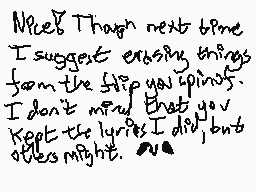 Nice! Though next time
I suggest erasing things
from the flip you spinof.
I don't mind that you
kept the lyrics I did, but
others might.